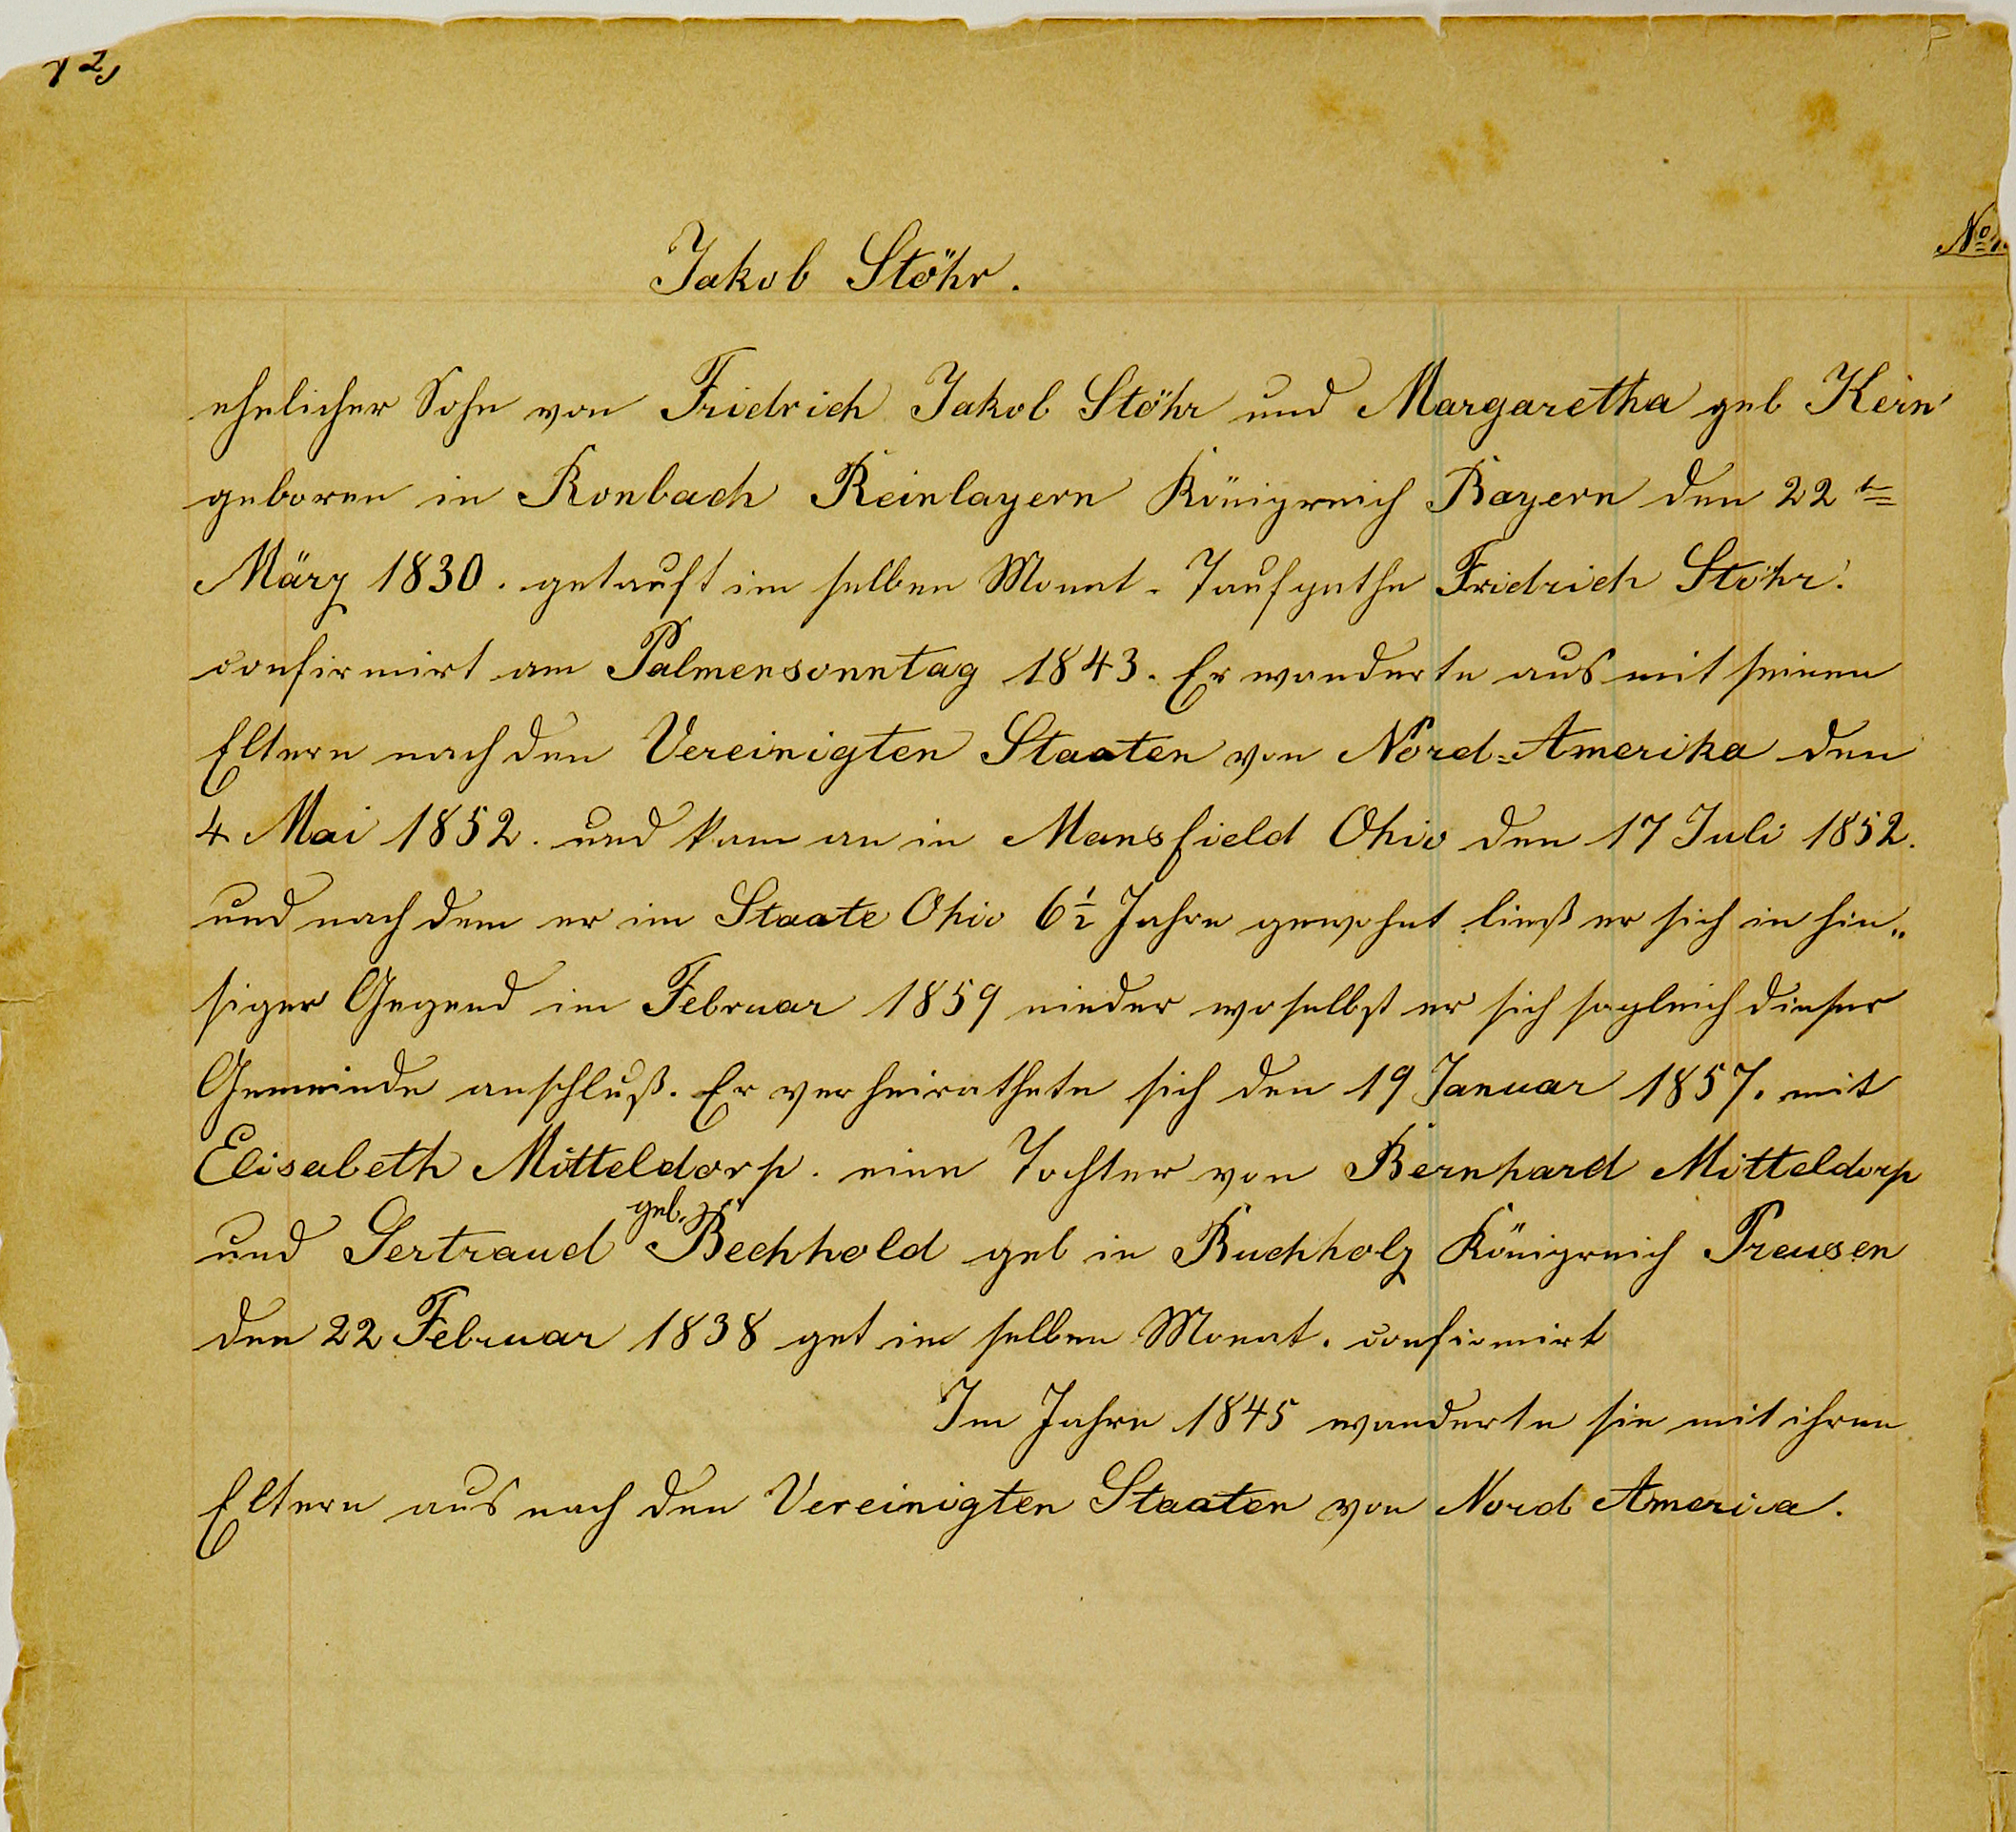 No 1.
Jakob Stöhr.
ehelicher Sohn von Fridrich Jakob Stöhr und Margaretha geb Kern
geboren in Ronbach Reinbayern Königreich Bayern den 22te
März 1830. getauft im selben Monat. Taufpathe Fridrich Stöhr.
confirmirt am Palmensonntag 1843. Er wanderte aus mit seinen
Eltern nach den Vereinigten Staaten von Nord=Amerika den
4 Mai 1852. und kam an in Mansfield Ohio den 17 Juli 1852.
und nach dem er im Staate Ohio 6½ Jahre gewohnt ließ er sich in hie„
siger Gegend im Februar 1859 nieder woselbst er sich sogleich dieser
Gemeinde anschluß. Er verheirathete sich den 19 Januar 1857. mit
Elisabeth Mitteldorp. eine Tochter von Bernhard Mitteldorp
und Gertraud geb. Bechhold geb in Buchholz Königreich Preusen
den 22 Februar 1838 get im selben Monat. confirmirt
Im Jahre 1845 wanderte sie mit ihren
Eltern aus nach den Vereinigten Staaten von Nord America.